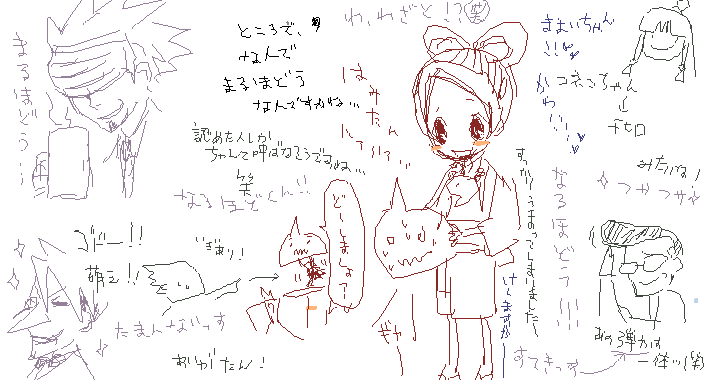 まるほどう…
ところで、
なんで
まるほどう
なんですかね…
わ、わざと!?笑
ままぃちゃん
!!
かわ!!
コネコちゃん
チヒロ
みたいな!
つかつか
はみたん
にてい?て…
認めた人しか
ちゃんて呼ばなそうですね…
笑
なるほどくん!!
どーしましょー!
すっかりうまってしまいました~
けしますが
なるほどう!!!
ゴドー!!
萌え!!
いぎあり!
たまんないっす
あいがたん!
ぎゃー
すてきっす
あの弾力は
一体ッ(笑)